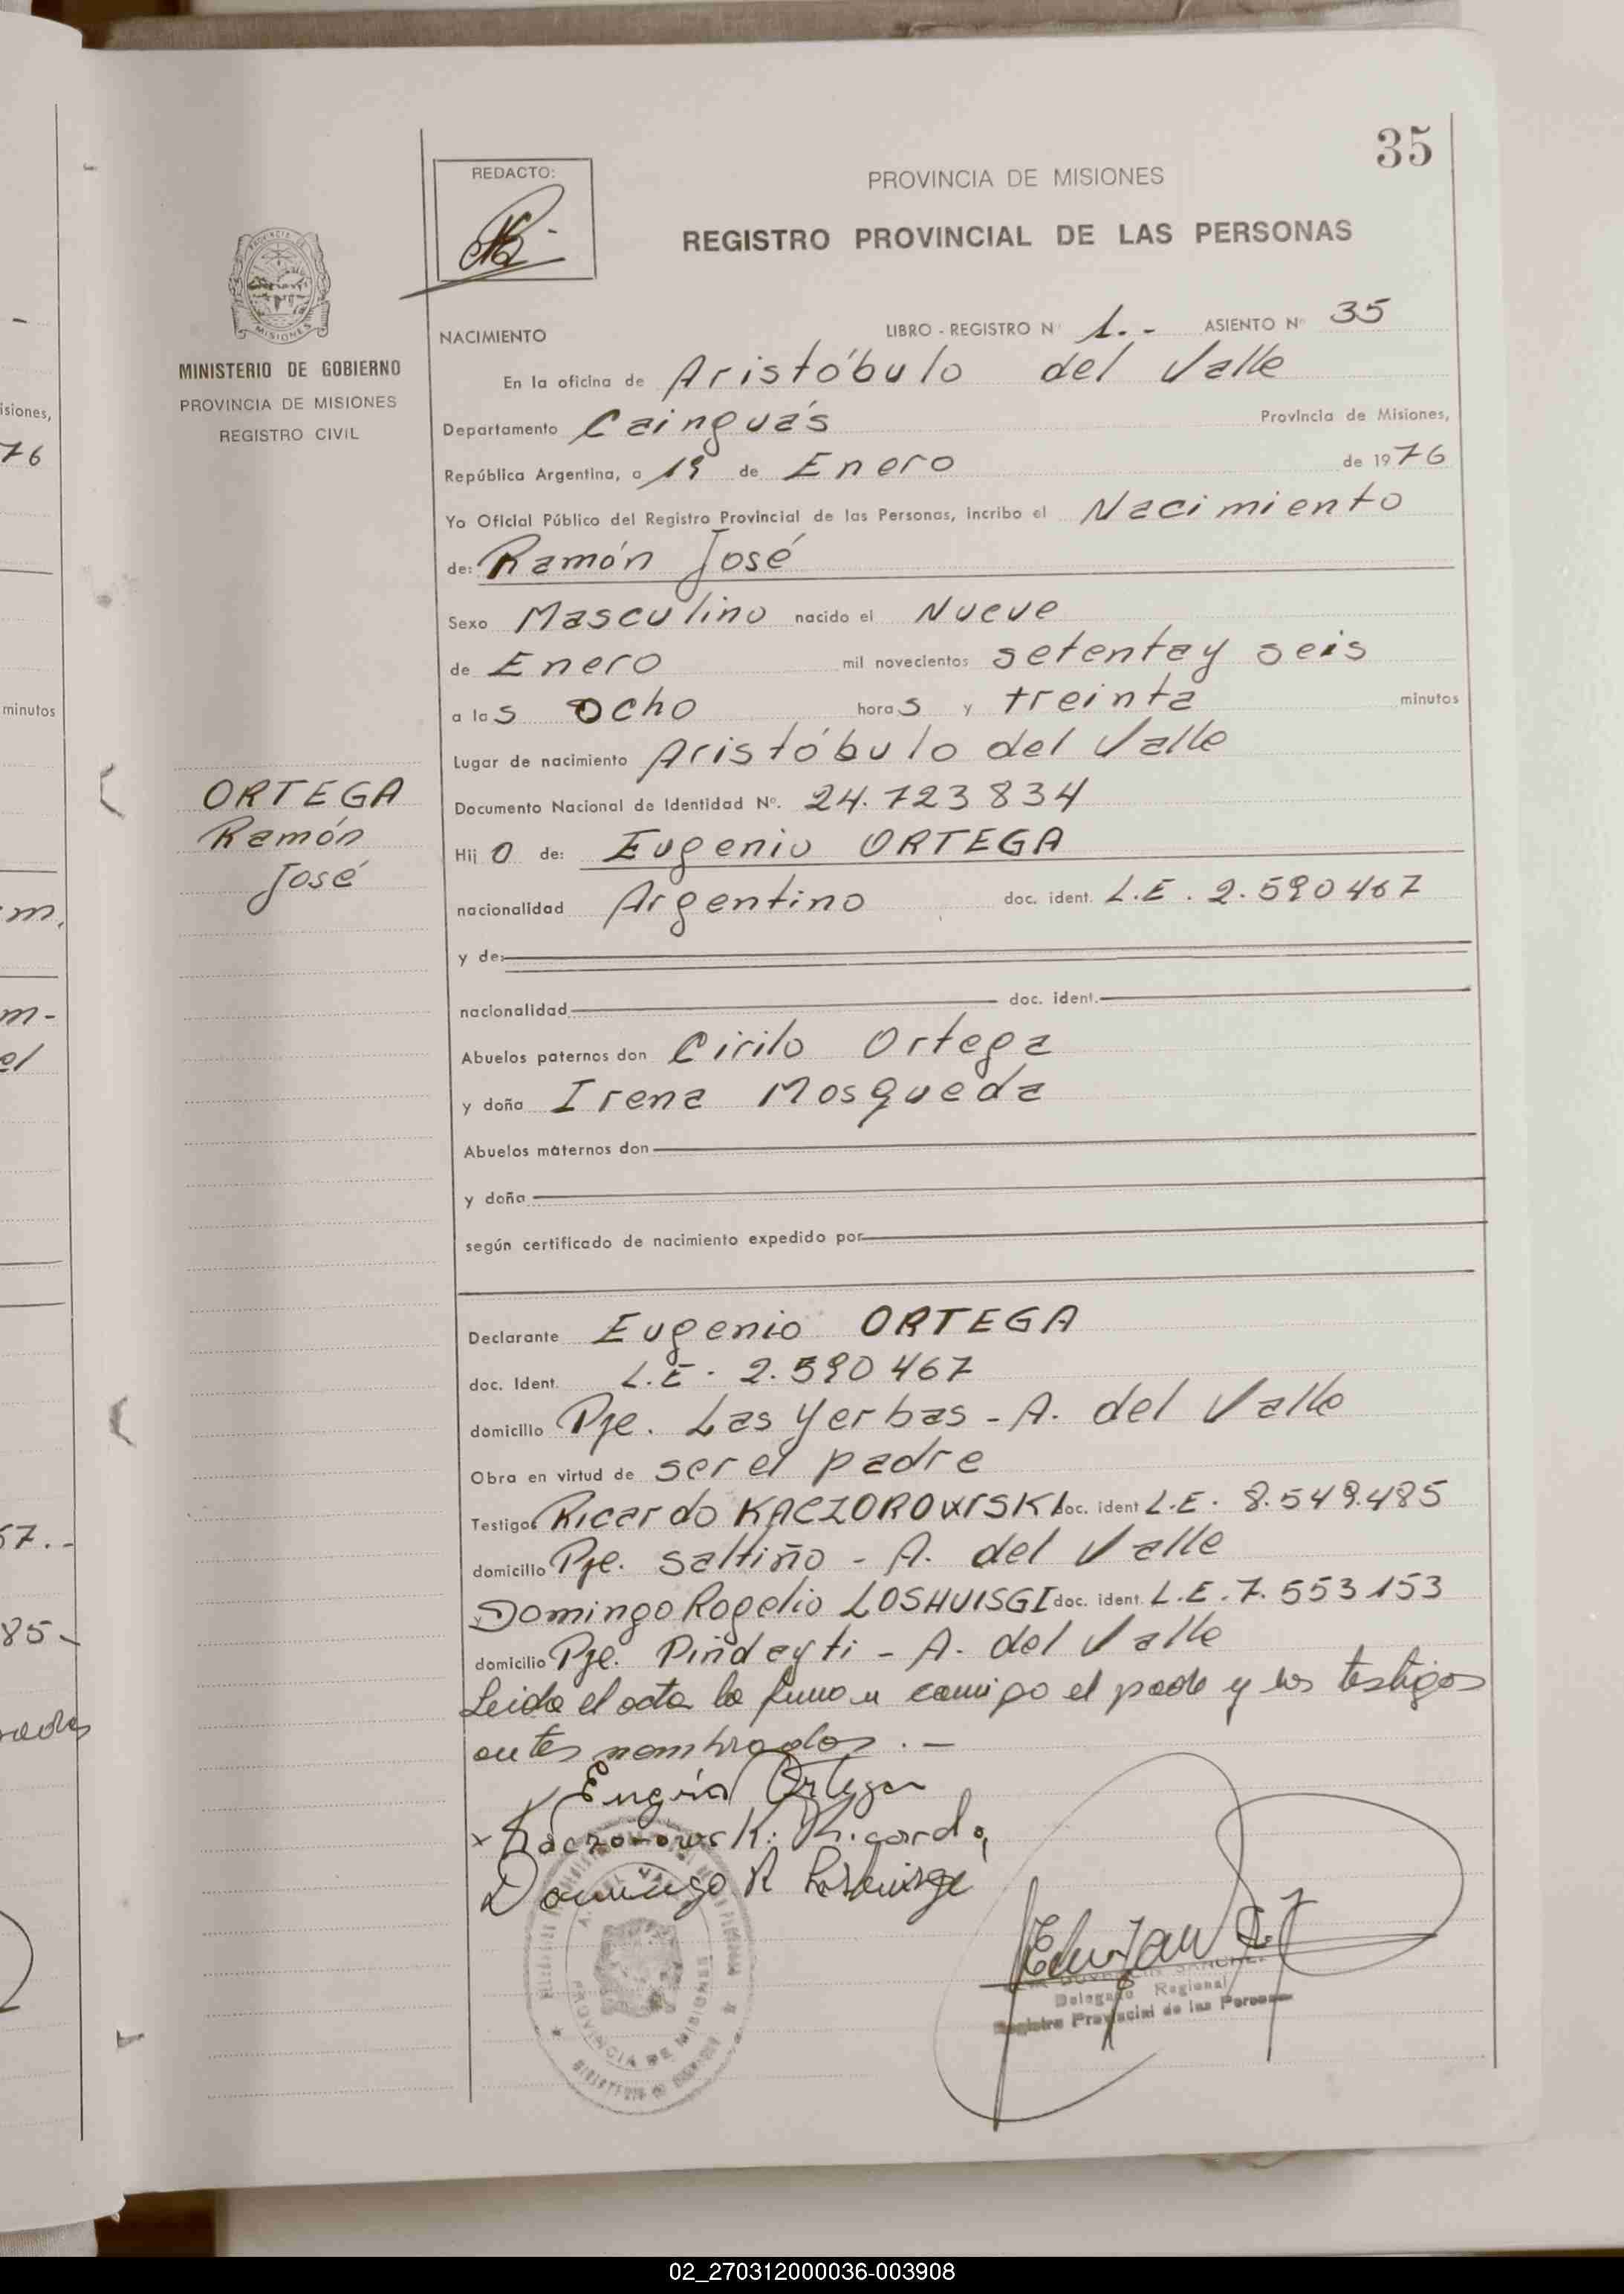 35
REDACTO:
PROVINCIA DE MISIONES
REGISTRO PROVINCIAL DE LAS PERSONAS
MISIONES
MINISTERIO DE GOBIERNO
PROVINCIA DE MISIONES
REGISTRO CIVIL
NACIMIENTO LIBRO - REGISTRO Nº 1.- ASIENTO Nº 35
En la oficina de Aristóbulo del Valle
Departamento Cainguás Provincia de Misiones,
República Argentina, a 19 de Enero de 1976
Yo Oficial Público del Registro Provincial de las Personas, incribo el Nacimiento
de: Ramón José
Sexo Masculino nacido el Nueve
de Enero mil novecientos setenta y seis
a las ocho horas y treinta minutos
Lugar de nacimiento Aristóbulo del Valle
ORTEGA
Ramón
José
Documento Nacional de Identidad Nº. 24.723834
Hijo de: Eugenio ORTEGA
nacionalidad Argentino doc. ident. L.E. 2.590467
y de:
nacionalidad doc. ident.
Abuelos paternos don Cirilo Ortega
y doña Irena Mosqueda
Abuelos maternos don
y doña
según certificado de nacimiento expedido por
Declarante Eugenio ORTEGA
doc. Ident. L.E. 2.590467
domicilio Pje. Las Yerbas - A. del Valle
Obra en virtud de ser el padre
Testigos Ricardo KACZOROWSKI doc. ident L.E. 8.549.485
domicilio Pje. Saltiño - A. del Valle
y Domingo Rogelio LOSHUISGI doc. ident. L.E. 7.553153
domicilio Pje. Piñdayti - A. del Valle
Leida el acta la firman conmigo el padre y los testigos
antes nombrados.-
Eugenio Ortega
x Kaczorowski Ricardo
Domingo R Loshuisgi
PROVINCIA DE MISIONES
SANCHEZ
Delegado Regional
Registro Provincial de las Personas
isiones,
76
minutos
m.
m-
el
57..-
85-
02_270312000036-003908